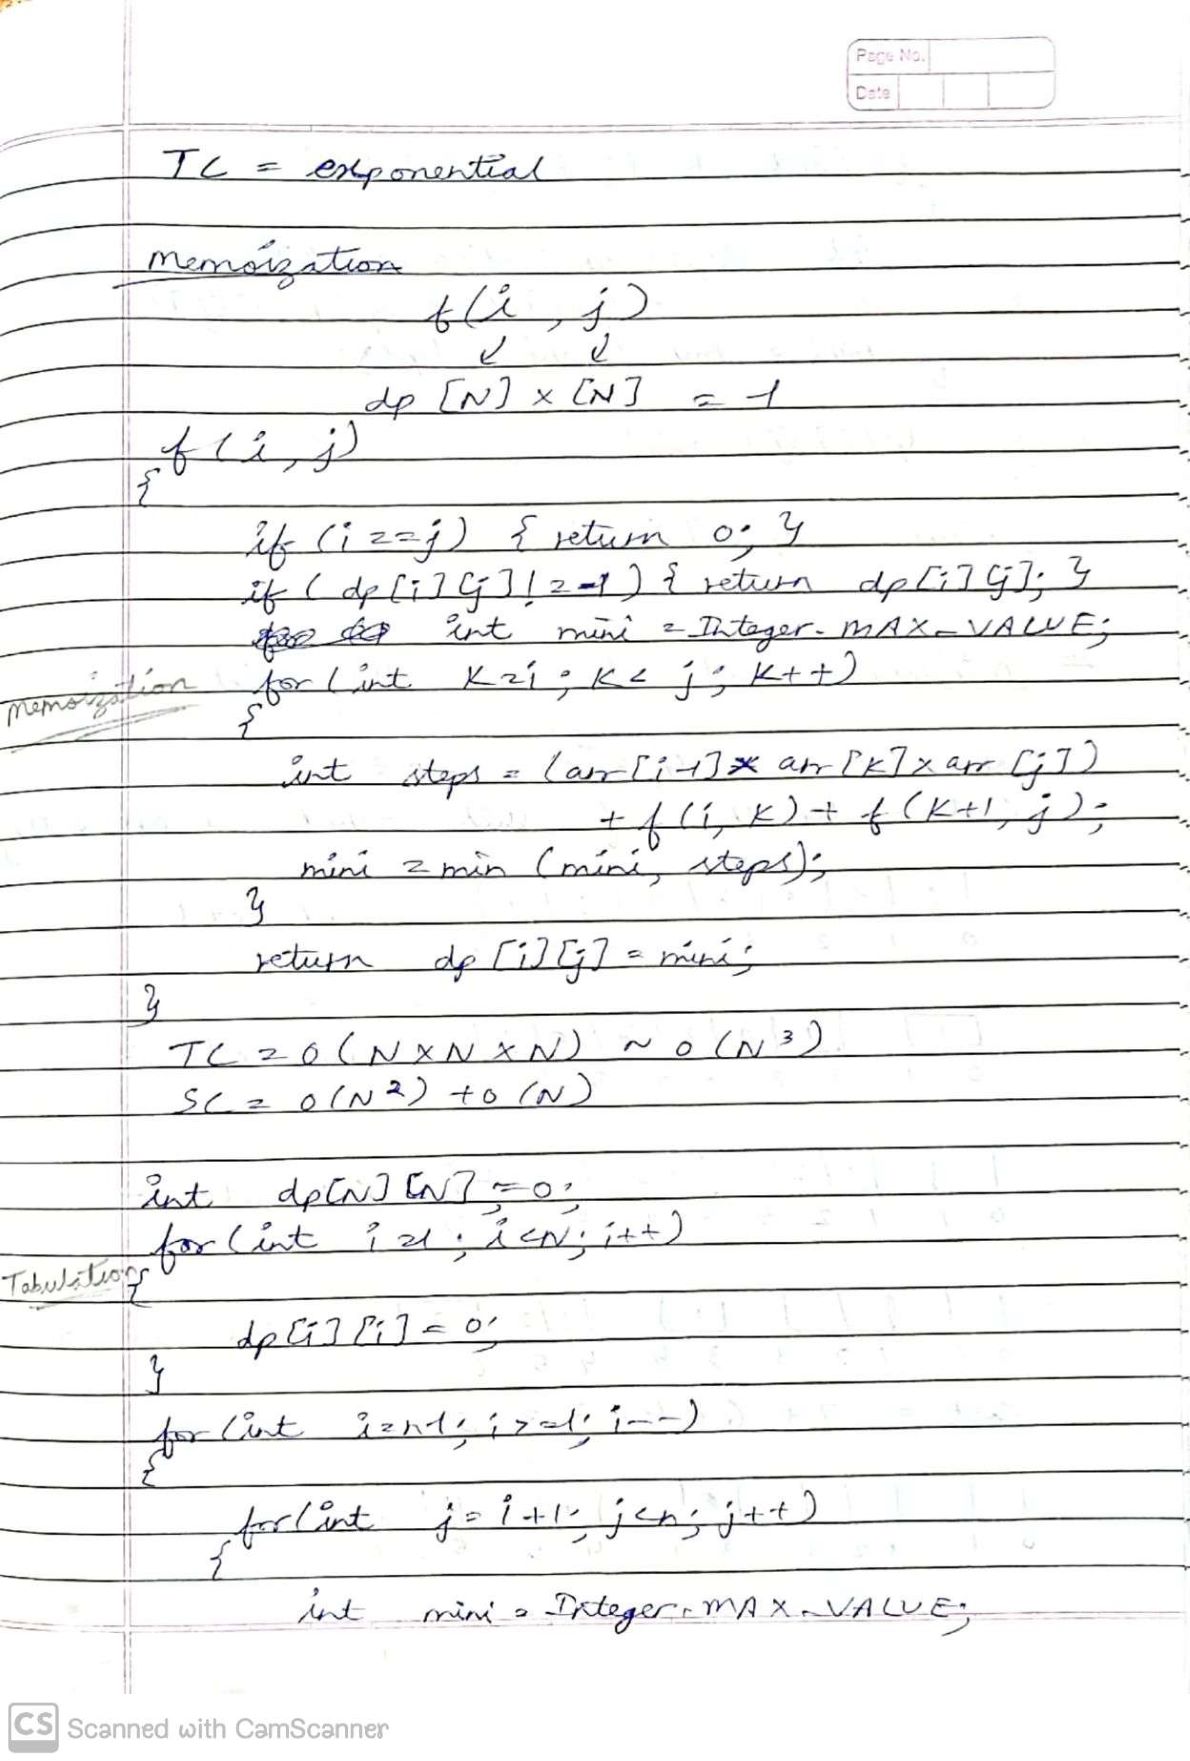 Page No.
Date
TC = exponential
memoization
f(i, j)
dp [N] x [N] = -1
f(i, j)
{
if (i==j) { return 0; }
if (dp[i][j]!=-1) { return dp[i][j]; }
int mini = Integer.MAX_VALUE;
memoization
for (int K=i; K< j; K++)
{
int steps = (arr[i-1]* arr[K]x arr[j])
+ f(i, K) + f(K+1, j);
mini = min (mini, steps);
}
return dp[i][j] = mini;
}
TC = O(N x N x N) ~ O(N³)
SC = O(N²) + O(N)
int dp[N][N] = 0;
for (int i=1; i<N; i++)
Tabulation
{
dp[i][i] = 0;
}
for (int i=n-1; i>=1; i--)
{
for (int j=i+1; j<n; j++)
{
int mini = Integer.MAX_VALUE;
CS Scanned with CamScanner